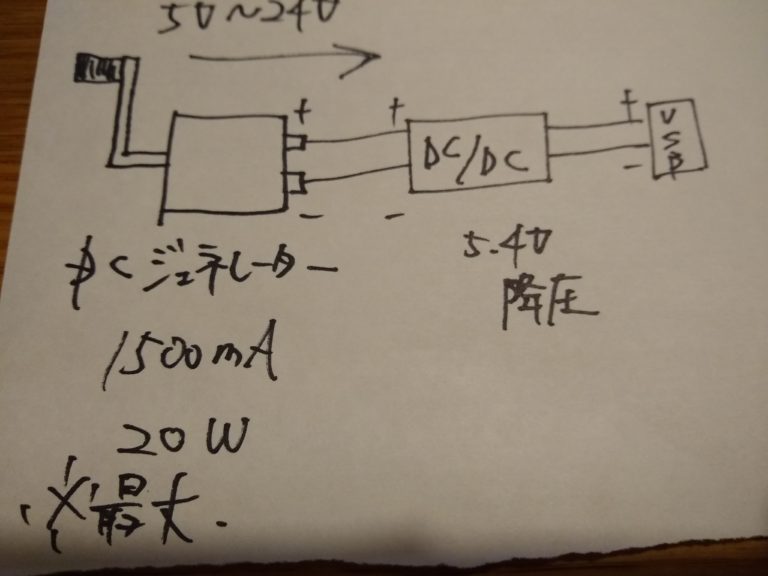 5V~24V
+ + +
DC/DC
USB
- - -
DCジェネレーター
5.4V
降圧
1500mA
20W
※最大.